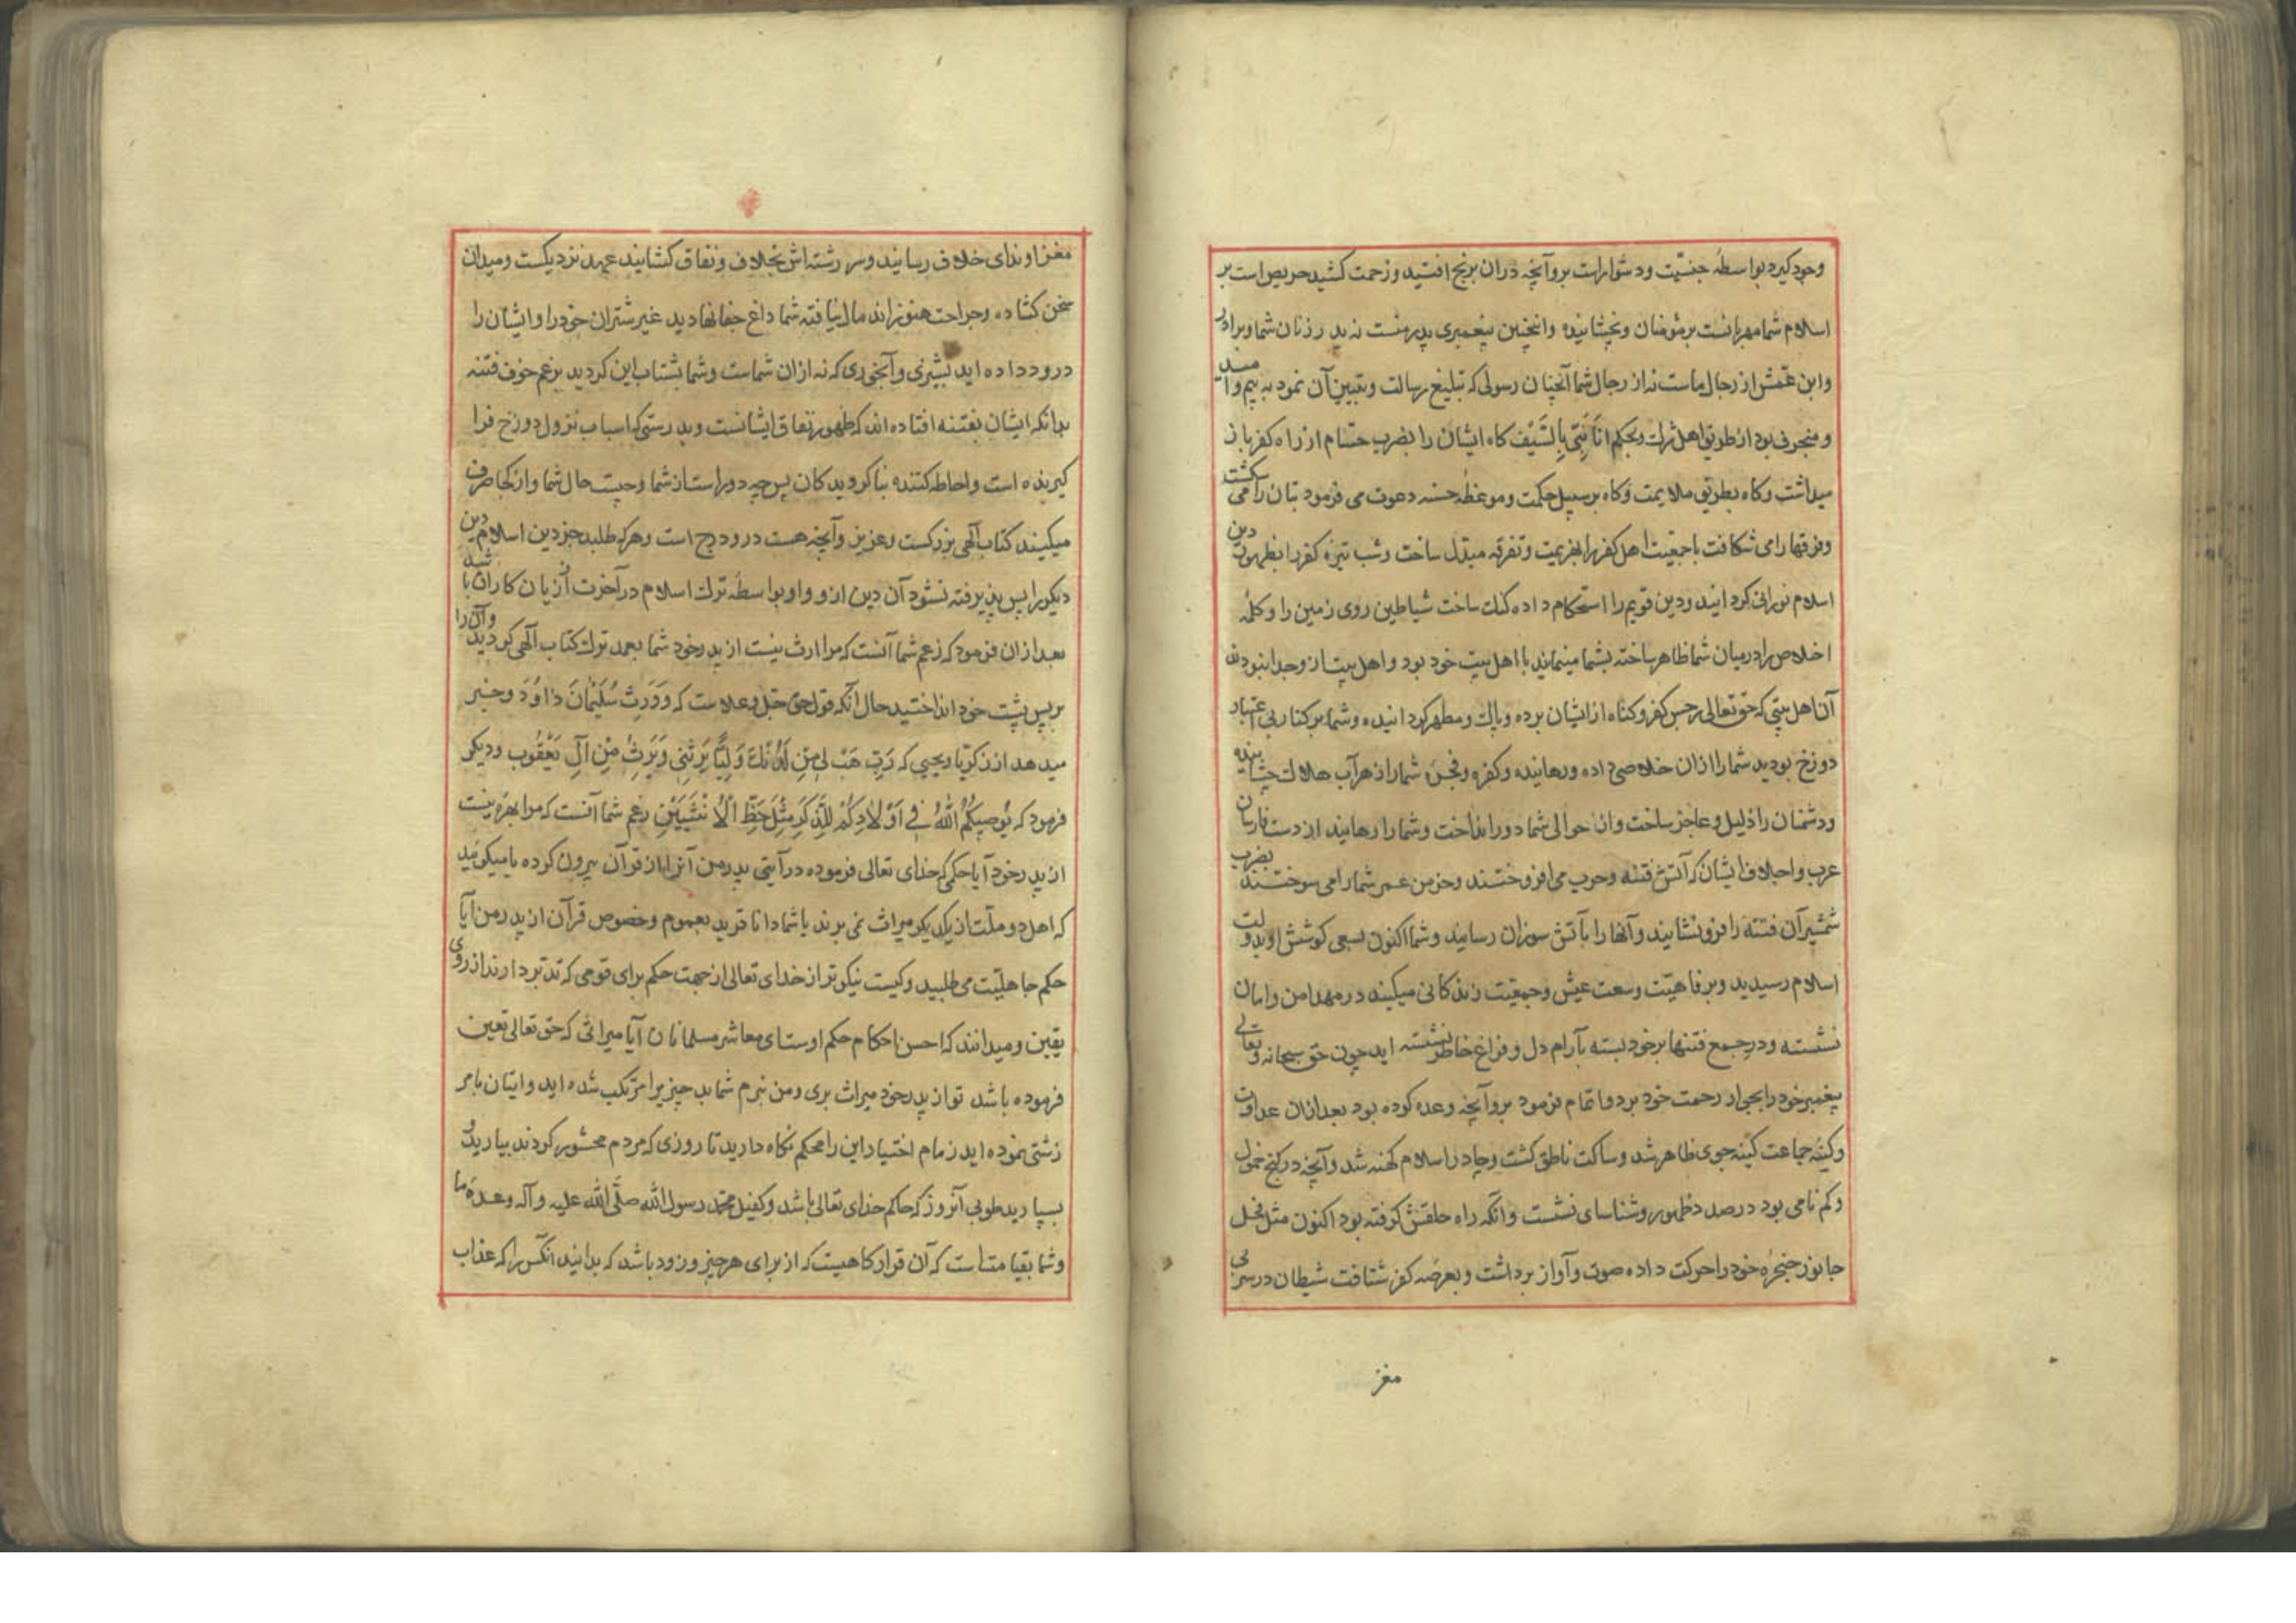 وجود کیرد بواسطهٔ جنسیّت ودشوارست برو آنچه دران برنج افتید وزحمت کشید حریص است بر
اسلام شما مهربانست برمؤمنان وبخشاینده واینچنین پیغمبری پدر منست نه پدر زنان شما وبرادر
وابن عمّش از رجال ماست نه از رجال شما آنچنان رسولی که تبلیغ رسالت وتبیین آن نمود به بیم وامید
ومنحرف بود از طریق اهل شرک وبحکم انا نبیّ بالسَّیْف کاه ایشان را بضرب حسام از راه کفر باز
میداشت وکاه بطریق ملایمت وکاه بر سبیل حکمت وموعظهٔ حسنه دعوت می فرمود بتان را می شکست
وفرقها را می شکافت تا جمعیت اهل کفر را بهزیمت وتفرقه مبدّل ساخت وشب تیره کفر را بظهور دین
اسلام نورانی کردانید ودین قویم را استحکام داده کنک ساخت شیاطین روی زمین را وکلمهٔ
اخلاص را درمیان شما ظاهر ساخته بشما مینمایند با اهل بیت خود بود واهل بیت ازو جدا نبودند
آن اهل بیتی که حق تعالی رجس کفر وکناه از ایشان برده وپاک ومطهر کردانیده وشما بر کنار بی اعتبار
دوزخ بودید شما را ازان خلاصی داده ورهانیده وکفره وفجره شما را از هر آب هلاک چشانیده
ودشمنان را ذلیل وعاجز ساخت وان حوالی شما دور انداخت وشما را رهانید از دست فارسان
عرب واجلاف ایشان که آتش فتنه وحرب می افروختند وخرمن عمر شما را می سوختند بضرب
شمشیر آن فتنه را فرو نشانید وآنها را بآتش سوزان رسانید وشما اکنون بسعی کوشش او بدولت
اسلام رسیدید وبرفاهیّت وسعت عیش وجمعیّت زندکانی میکنید در مهد امن وامان
نشسته ودر جمیع فتنها بر خود بسته بآرام دل وفراغ خاطر نشسته اید چون حق سبحانه وتعالی
پیغمبر خود را بجوار رحمت خود برد واتمام فرمود برو آنچه وعده کرده بود بعدازان عداوت
وکینهٔ جماعت کینه جوی ظاهر شد وساکت ناطق کشت وچادر اسلام کهنه شد وآنچه در کنج خمول
وکم نامی بود درصدد ظهور وشناسای نشست وانکه راه حلقش کرفته بود اکنون مثل فحل
جانور حنجرهٔ خود را حرکت داده صوت وآواز برداشت وبعرضه کفر شتافت شیطان در سر بی
مغز
مغز او ندای خلاف رسانید وسر رشته اش بخلاف ونفاق کشانید عهد نزدیکست ومیدان
سخن کشاده وجراحت هنوز اندمال نیافته شما داغ جفا نهادید غیر شتران خود را وایشان را
درود داده اید بشیری وآبخوری که نه ازان شماست وشما بشتاب این کردید بزعم خوف فتنه
بدانکه ایشان بفتنه افتاده اند که ظهور نفاق ایشانست وبدرستی که اسباب نزول دوزخ فرا
کیرنده است واحاطه کننده بنا کرویدکان پس چه دوراست از شما وچیست حال شما وازکجا صرف
میکنید کتاب آلهی بزرکست وعزیز وآنچه هست درو درج است وهرکه طلبد جز دین اسلام دین
دیکر را پس پذیرفته نشود آن دین ازو واو بواسطهٔ ترک اسلام در آخرت از زیان کاران باشد
بعدازان فرمود که زعم شما آنست که مرا ارث نیست از پدر خود شما بعمد ترک کتاب آلهی کردید وآن را
بر پس پشت خود انداختید حال آنکه قول حق جل وعلاست که وَوَرِثَ سُلَیْمَانَ دَاوُدَ وخبر
میدهد از زکریا ویحیی که رَبِّ هَبْ لِی مِن لَدُنْکَ وَلِیًّا یَرِثُنِی وَیَرِثُ مِنْ آلِ یَعْقُوب ودیکر
فرمود که یُوصِیکُمُ اللّٰهُ فِی اَوْلَادِکُمْ لِلذَّکَرِ مِثْلُ حَظِّ الْاُنْثَیَیْنِ زعم شما آنست که مرا بهره نیست
از پدر خود آیا حکمی که خدای تعالی فرموده در آیتی پدر من آنرا از قرآن بیرون کرده یا میکوئید
که اهل دو ملّت از یکدیکر میراث نمی برند یا شما داناترید بعموم وخصوص قرآن از پدر من آیا
حکم جاهلیّت می طلبید وکیست نیکوتر از خدای تعالی از جهت حکم برای قومی که تدبّر دارند از روی
یقین ومیدانند که احسن احکام حکم اوست ای معاشر مسلمانان آیا میراثی که حق تعالی تعین
فرموده باشد تو از پدر خود میراث بری ومن نبرم شما بد چیزی را مرتکب شده اید واتیان بامر
زشتی نموده اید زمام اختیار این را محکم نکاه دارید تا روزی که مردم محشور کردند بیارید و
بسپارید طوبی آنروز که حاکم خدای تعالی باشد وکفیل محمّد رسول اللّٰه صلّی اللّٰه علیه وآله وعدهٔ ما
وشما بقیامتست که آن قرارکاهیست که از برای هرچیز وزود باشد که بدانید آنکس را که عذاب